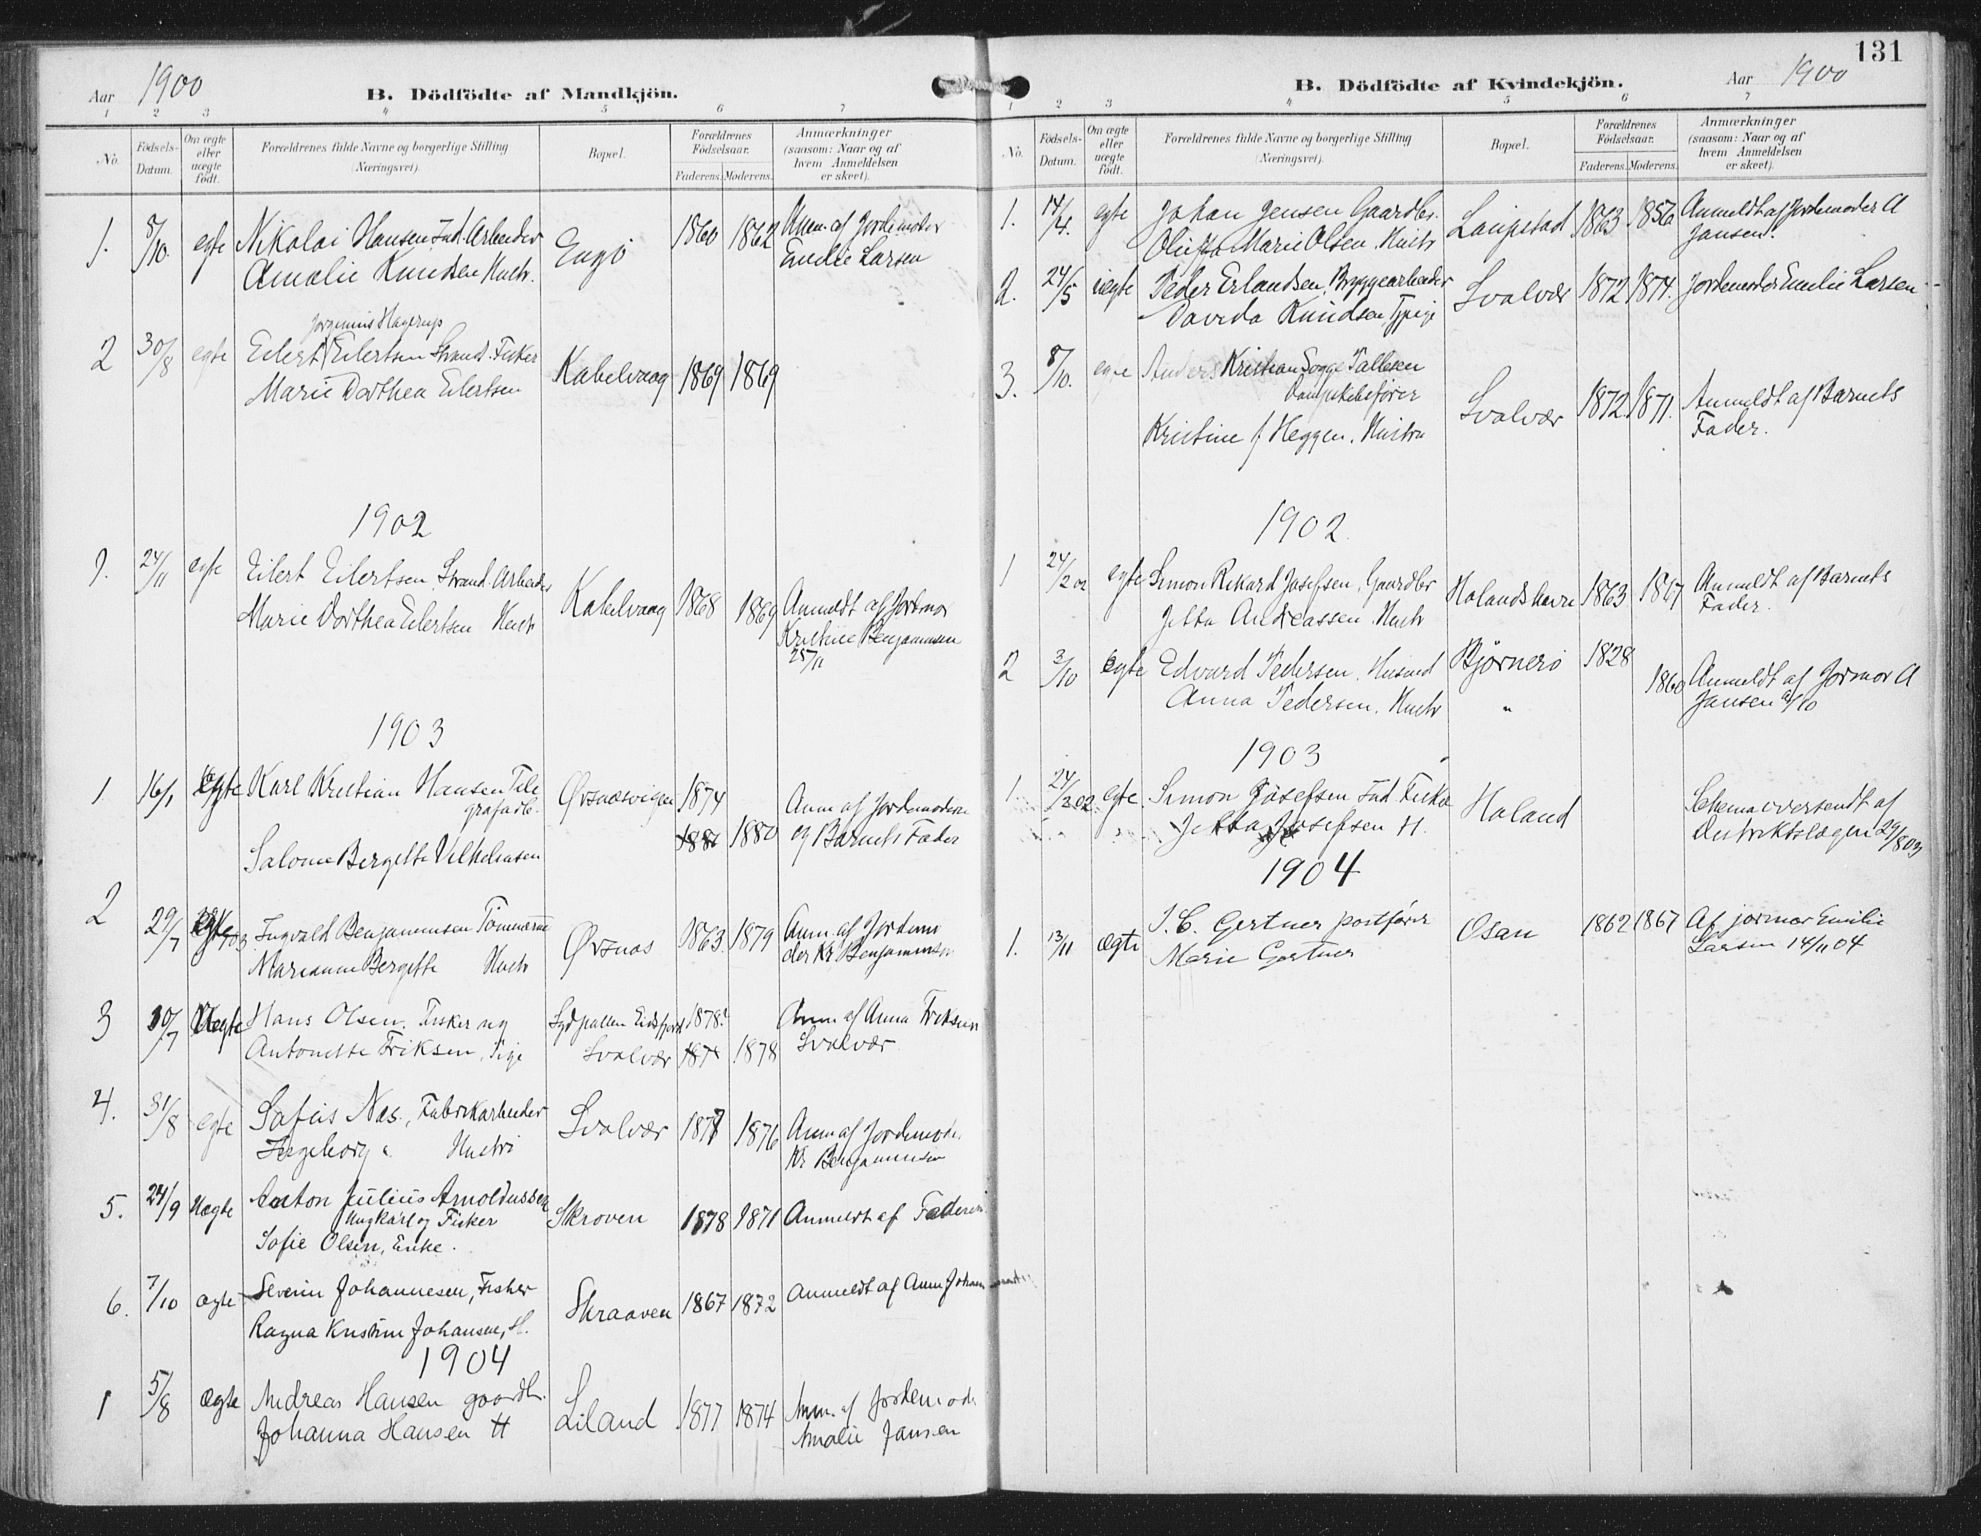 Aar 1900
B. Dödfödte af Mandkjön.
1 2 3 4 5 6 7
No.
Födsels-Datum.
Om ægte eller uægte födt.
Forældrenes fulde Navne og borgerlige Stilling
(Næringsvei).
Bopæl.
Forældrenes Födselsaar.
Faderens. Moderens.
Anmærkninger
(saasom: Naar og af
hvem Anmeldelsen
er skeet).
1. 8/10. egte Nikolai Hansen Ind. Arbeider Engö 1860 1862 Anm. af Jordemoder
Amalie Knudsen Hustr. Emelie Larsen
Jorginius Hagerup
2 30/8 egte Eilert Eilertsen Strand. Fisker Kabelvaag 1869 1869
Marie Dorthea Eilertsen
1902
1. 24/11 egte Eilert Eilertsen Strand. Arbeider Kabelvaag 1868 1869 Anmeldt af Jordmor
Marie Dorthea Eilertsen Hustr Kristine Benjaminsen
25/11
1903
1 16/1 egte Karl Kristian Hansen Tele Ørsnæsvigen 1874
grafarb. 1881 1880 Anm af Jordemoderen
Salome Bergitte Vilhelmsen og Barnets Fader
2 29/7 03 Ingvald Benjaminsen Tømmerm Ørsnæs 1863 1879 Anm. af Jordemo
Marianne Bergitte Hustr der Kr Benjaminsen
3 30/7 Uegte Hans Olsen. Fisker og Sydpallen Eidsfjord 1878
Antonette Friksen, Pige Svolvær 1878 Anm af Anna Friksen
Svolvær
4. 31/8 egte Sofus Næs., Fabrikarbeider Svolvær 1877 1876 Anm af Jordemoder
Ingeborg " Hustri Kr Benjaminsen
5. 24/9 Uegte Anton Julius Arnoldussen Skroven 1878 1871 Anmeldt af Faderen
Ungkarl og Fisker
Sofie Olsen, Enke.
6. 7/10 ægte Severin Johannesen, Fisker Skraaven 1867 1872 Anmeldt af Anna Johansen
Ragna Kristine Johansen, H.
1904
1 5/8 ægte Andreas Hansen gaardb. Liland 1877 1874 Anm. af Jordemoder
Johanna Hansen H Amalie Jansen
131
B. Dödfödte af Kvindekjön.
Aar 1900
1 2 3 4 5 6 7
No.
Födsels-Datum.
Om ægte eller uægte födt.
Forældrenes fulde Navne og borgerlige Stilling
(Næringsvei).
Bopæl.
Forældrenes Födselsaar.
Faderens. Moderens.
Anmærkninger
(saasom: Naar og af
hvem Anmeldelsen
er skeet).
1. 14/4. egte Johan Jensen Gaardbr. Laupstad 1863 1856 Anmeldt af Jordemoder A
Marie Olsen. Hustr Jansen.
2. 24/5 uegte Peder Erlandsen, Bryggearbeider Svolvær 1872 1874. Jordemoder Emelie Larsen
Davida Knudsen, Tjpige
3. 8/10. egte Anders Kristian Sogge Tallesen
Dampskibsfører Svolvær 1872 1871. Anmeldt af Barnets
Kristine f Heggen. Hustru Fader.
1902
1 24/2 02 egte Simon Rikard Josefsen, Gaardbr Holandshavn 1863 1867 Anmeldt af Barnets
Jetta Andreassen. Hustr Fader.
2 3/10 egte Edvard Pedersen. Husmd Bjørnerö 1828
Anna Pedersen. Hustr " 1860 Anmeldt af Jormor A
Jansen /10
1903
1 24/2 02 egte. Simon Josefsen Ind. Fisker Holand Schema oversendt af
Jetta Josefsen H. Distriktslægen 29/8 03
1904
1. 13/11 ægte J. C. Gertner postfører Osan 1862 1867 Af jormor Emilie
Marie Gertner Larsen 14/11 04